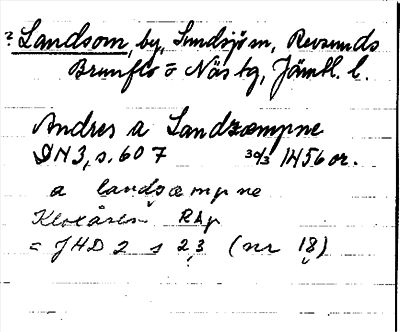 ? Landsom, by, Sundsjö sn, Revsunds
Brunflo o Näs tg, Jämtl. l.
Andres a Landzœmpne
DN 3, s. 607 30/3 1456 or.
a landzœmpne
Klokåsen RAp
= JHD 2 s 23 (nr 18)